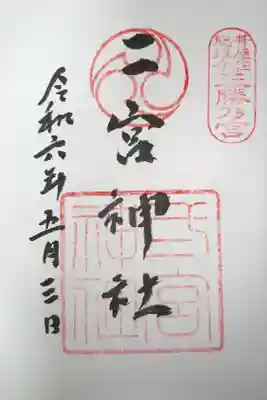 二宮神社
令和六年五月三日
二宮
神社